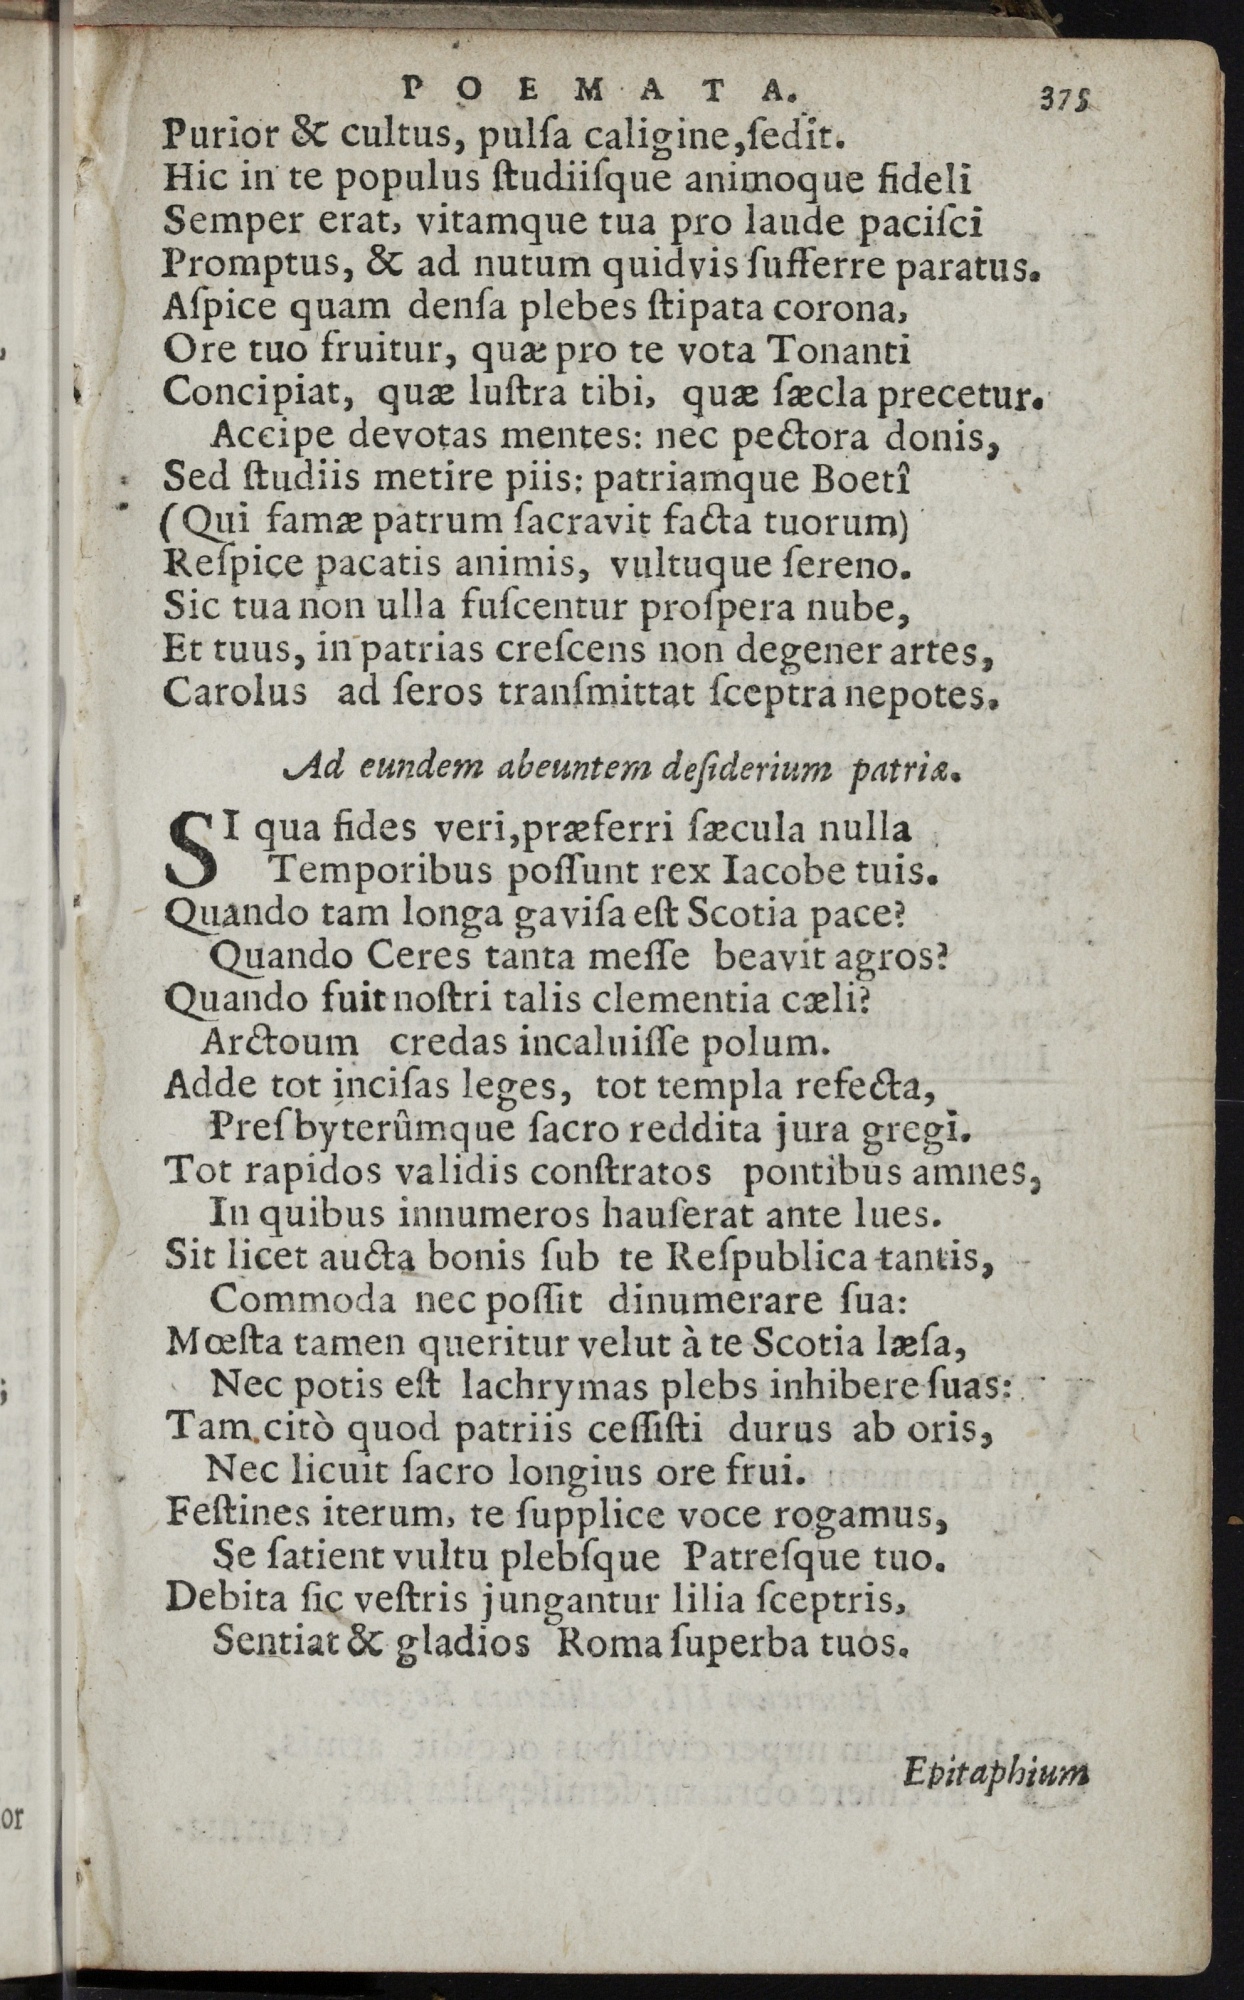 POEMATA. 375
Purior & cultus, pulſa caligine, ſedit.
Hic in te populus ſtudiiſque animoque fideli
Semper erat, vitamque tua pro laude paciſci
Promptus, & ad nutum quidvis ſufferre paratus.
Aſpice quam denſa plebes ſtipata corona,
Ore tuo fruitur, quæ pro te vota Tonanti
Concipiat, quæ luſtra tibi, quæ ſæcla precetur.
Accipe devotas mentes: nec pectora donis,
Sed ſtudiis metire piis: patriamque Boetî
(Qui famæ patrum ſacravit facta tuorum)
Reſpice pacatis animis, vultuque ſereno.
Sic tua non ulla fuſcentur proſpera nube,
Et tuus, in patrias creſcens non degener artes,
Carolus ad ſeros tranſmittat ſceptra nepotes.
Ad eundem abeuntem deſiderium patriæ.
SI qua fides veri, præferri ſæcula nulla
Temporibus poſſunt rex Iacobe tuis.
Quando tam longa gaviſa eſt Scotia pace?
Quando Ceres tanta meſſe beavit agros?
Quando fuit noſtri talis clementia cæli?
Arctoum credas incaluiſſe polum.
Adde tot inciſas leges, tot templa refecta,
Preſbyterûmque ſacro reddita jura gregi.
Tot rapidos validis conſtratos pontibus amnes,
In quibus innumeros hauſerat ante lues.
Sit licet aucta bonis ſub te Reſpublica tantis,
Commoda nec poſſit dinumerare ſua:
Mœſta tamen queritur velut à te Scotia læſa,
Nec potis eſt lachrymas plebs inhibere ſuas:
Tam citò quod patriis ceſſiſti durus ab oris,
Nec licuit ſacro longius ore frui.
Feſtines iterum, te ſupplice voce rogamus,
Se ſatient vultu plebſque Patreſque tuo.
Debita ſic veſtris jungantur lilia ſceptris,
Sentiat & gladios Roma ſuperba tuos.
Epitaphium